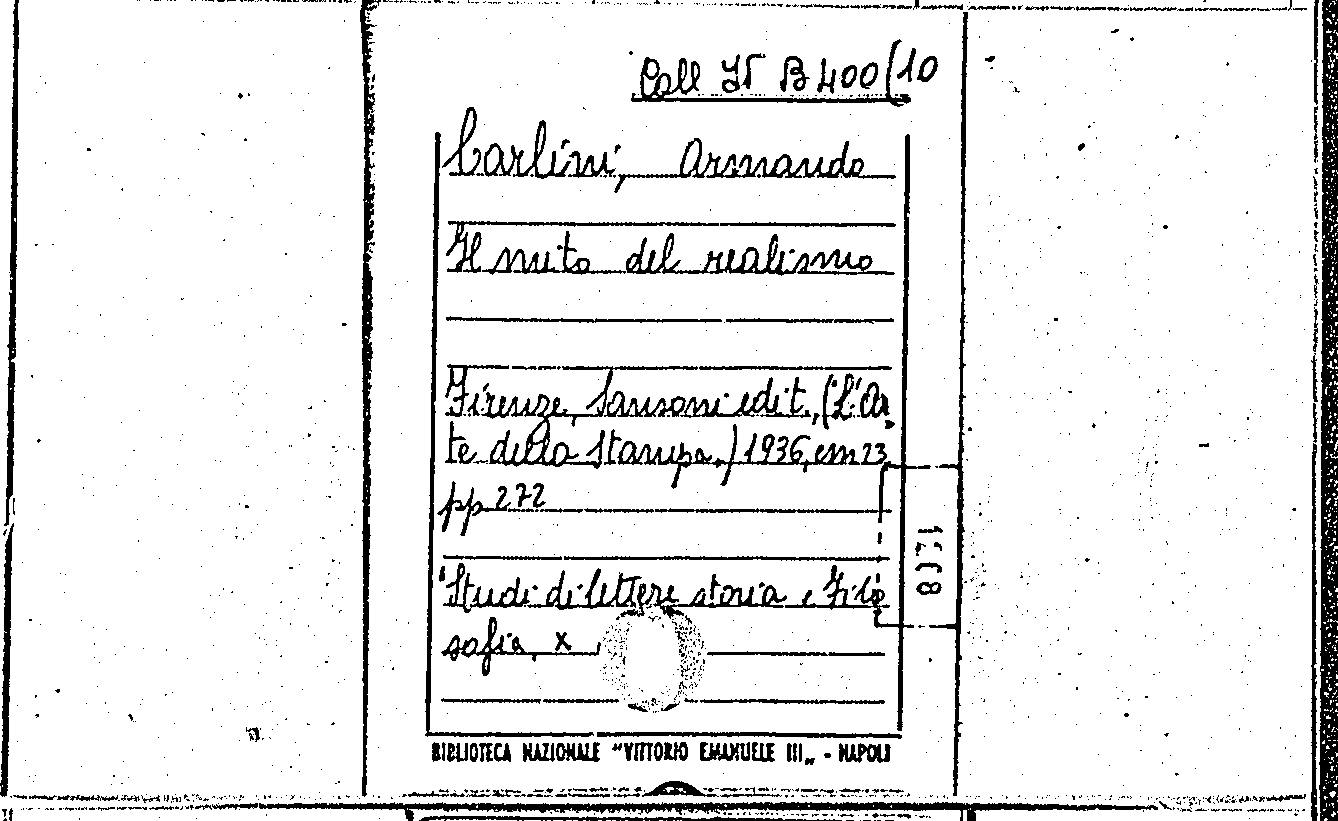 Coll It B 400(10
Carlini, Armando
Il mito del realismo
Firenze, Sansoni edit. (L'Ar
te della Stampa.) 1936, cm 23
pp. 272
Studi di lettere storia e Filo
sofia, X
BIBLIOTECA NAZIONALE "VITTORIO EMANUELE III„ - NAPOLI